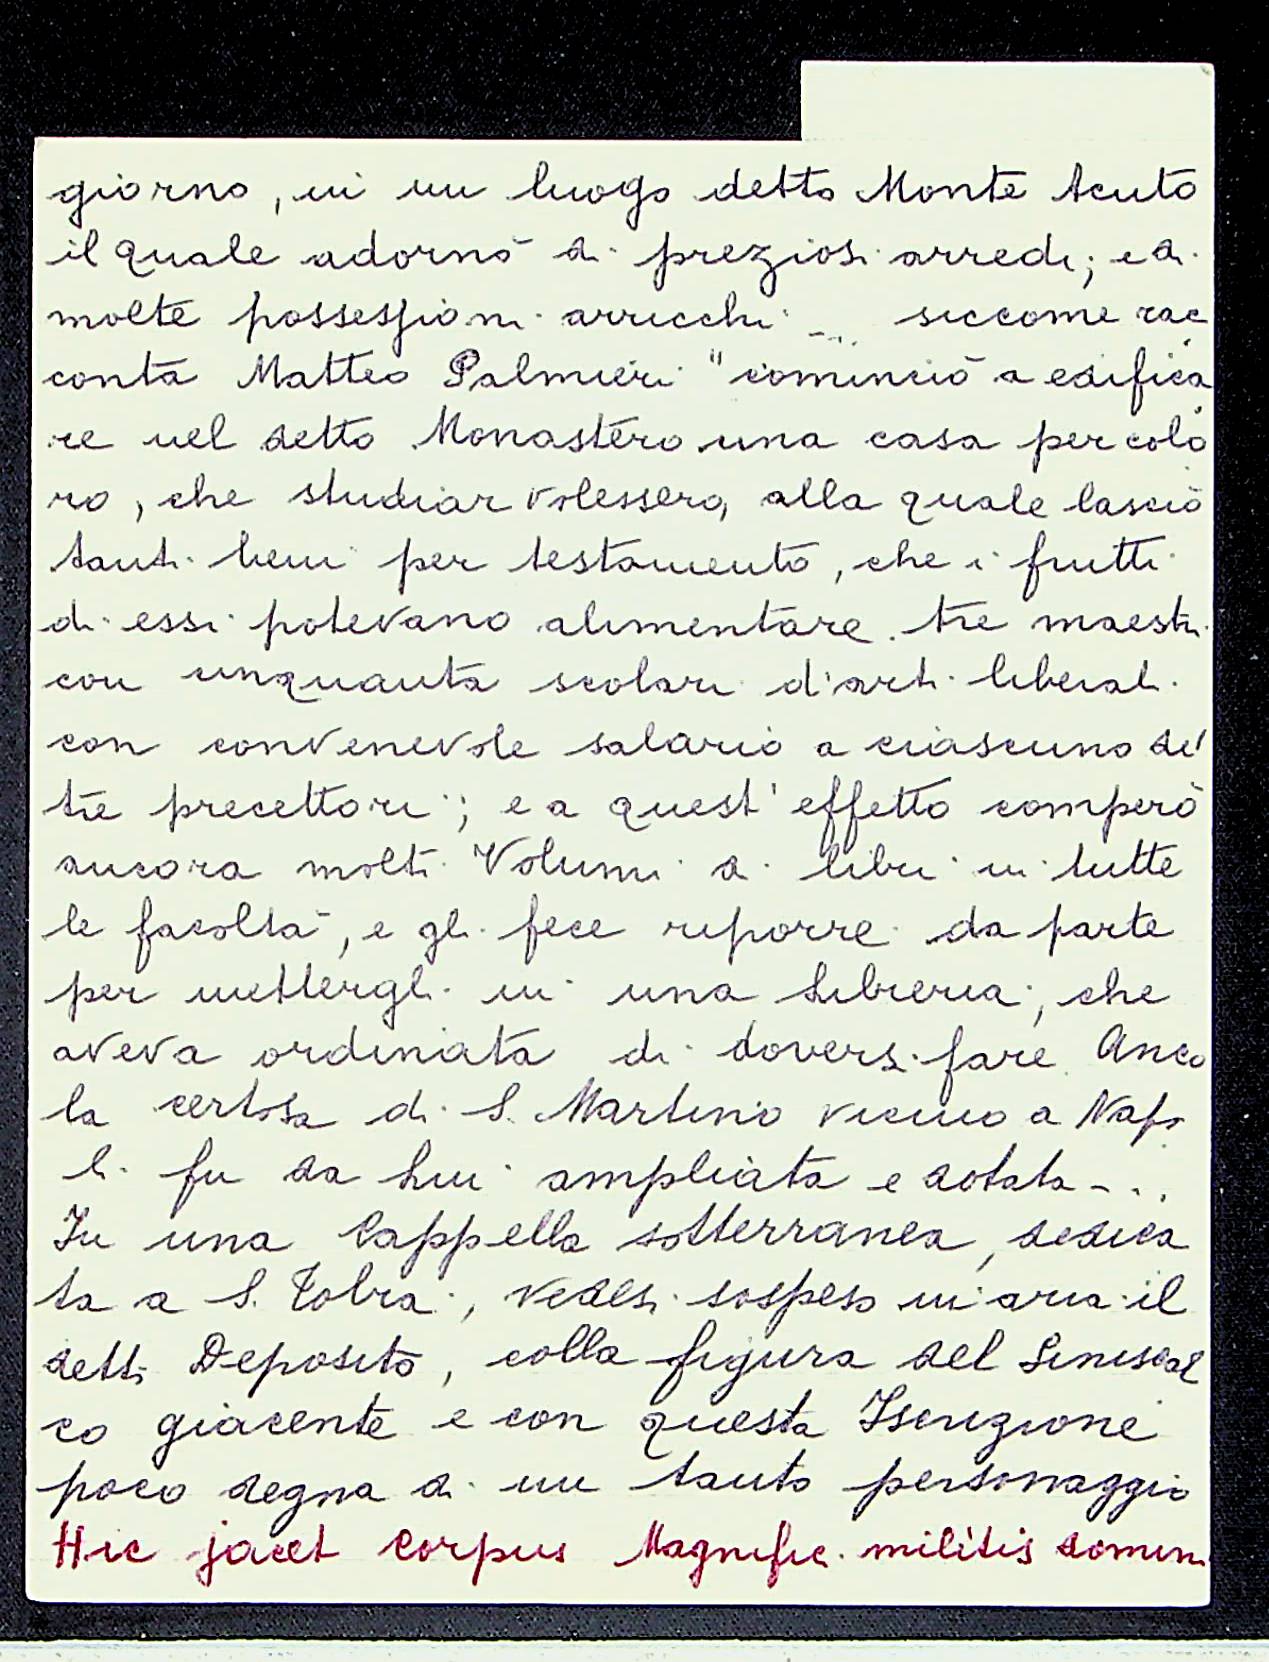 giorno, in un luogo detto Monte Acuto
il quale adornò di preziosi arredi; e di
molte possessioni arricchi ... siccome rac
conta Matteo Palmieri "cominciò a edifica
re nel detto Monastero una casa per colo
ro, che studiar volessero, alla quale lasciò
tanti beni per testamento, che i frutti
di essi potevano alimentare tre maestri
con cinquanta scolari d'arti liberali
con convenevole salario a ciascuno de'
tre precettori; e a quest'effetto comperò
ancora molti Volumi di libri in tutte
le facoltà, e gli fece riporre da parte
per mettergli in una Libreria, che
aveva ordinata di doversi fare. Anco
la certosa di S. Martino vicino a Napo
li fu da Lui ampliata e dotata - ..
In una Cappella sotterranea, dedica
ta a S. Tobia, vedesi sospeso in aria il
detto Deposito, colla figura del Siniscal
co giacente e con questa Iscrizione
poco degna di un tanto personaggio
Hic jacet corpus Magnific. militis domini